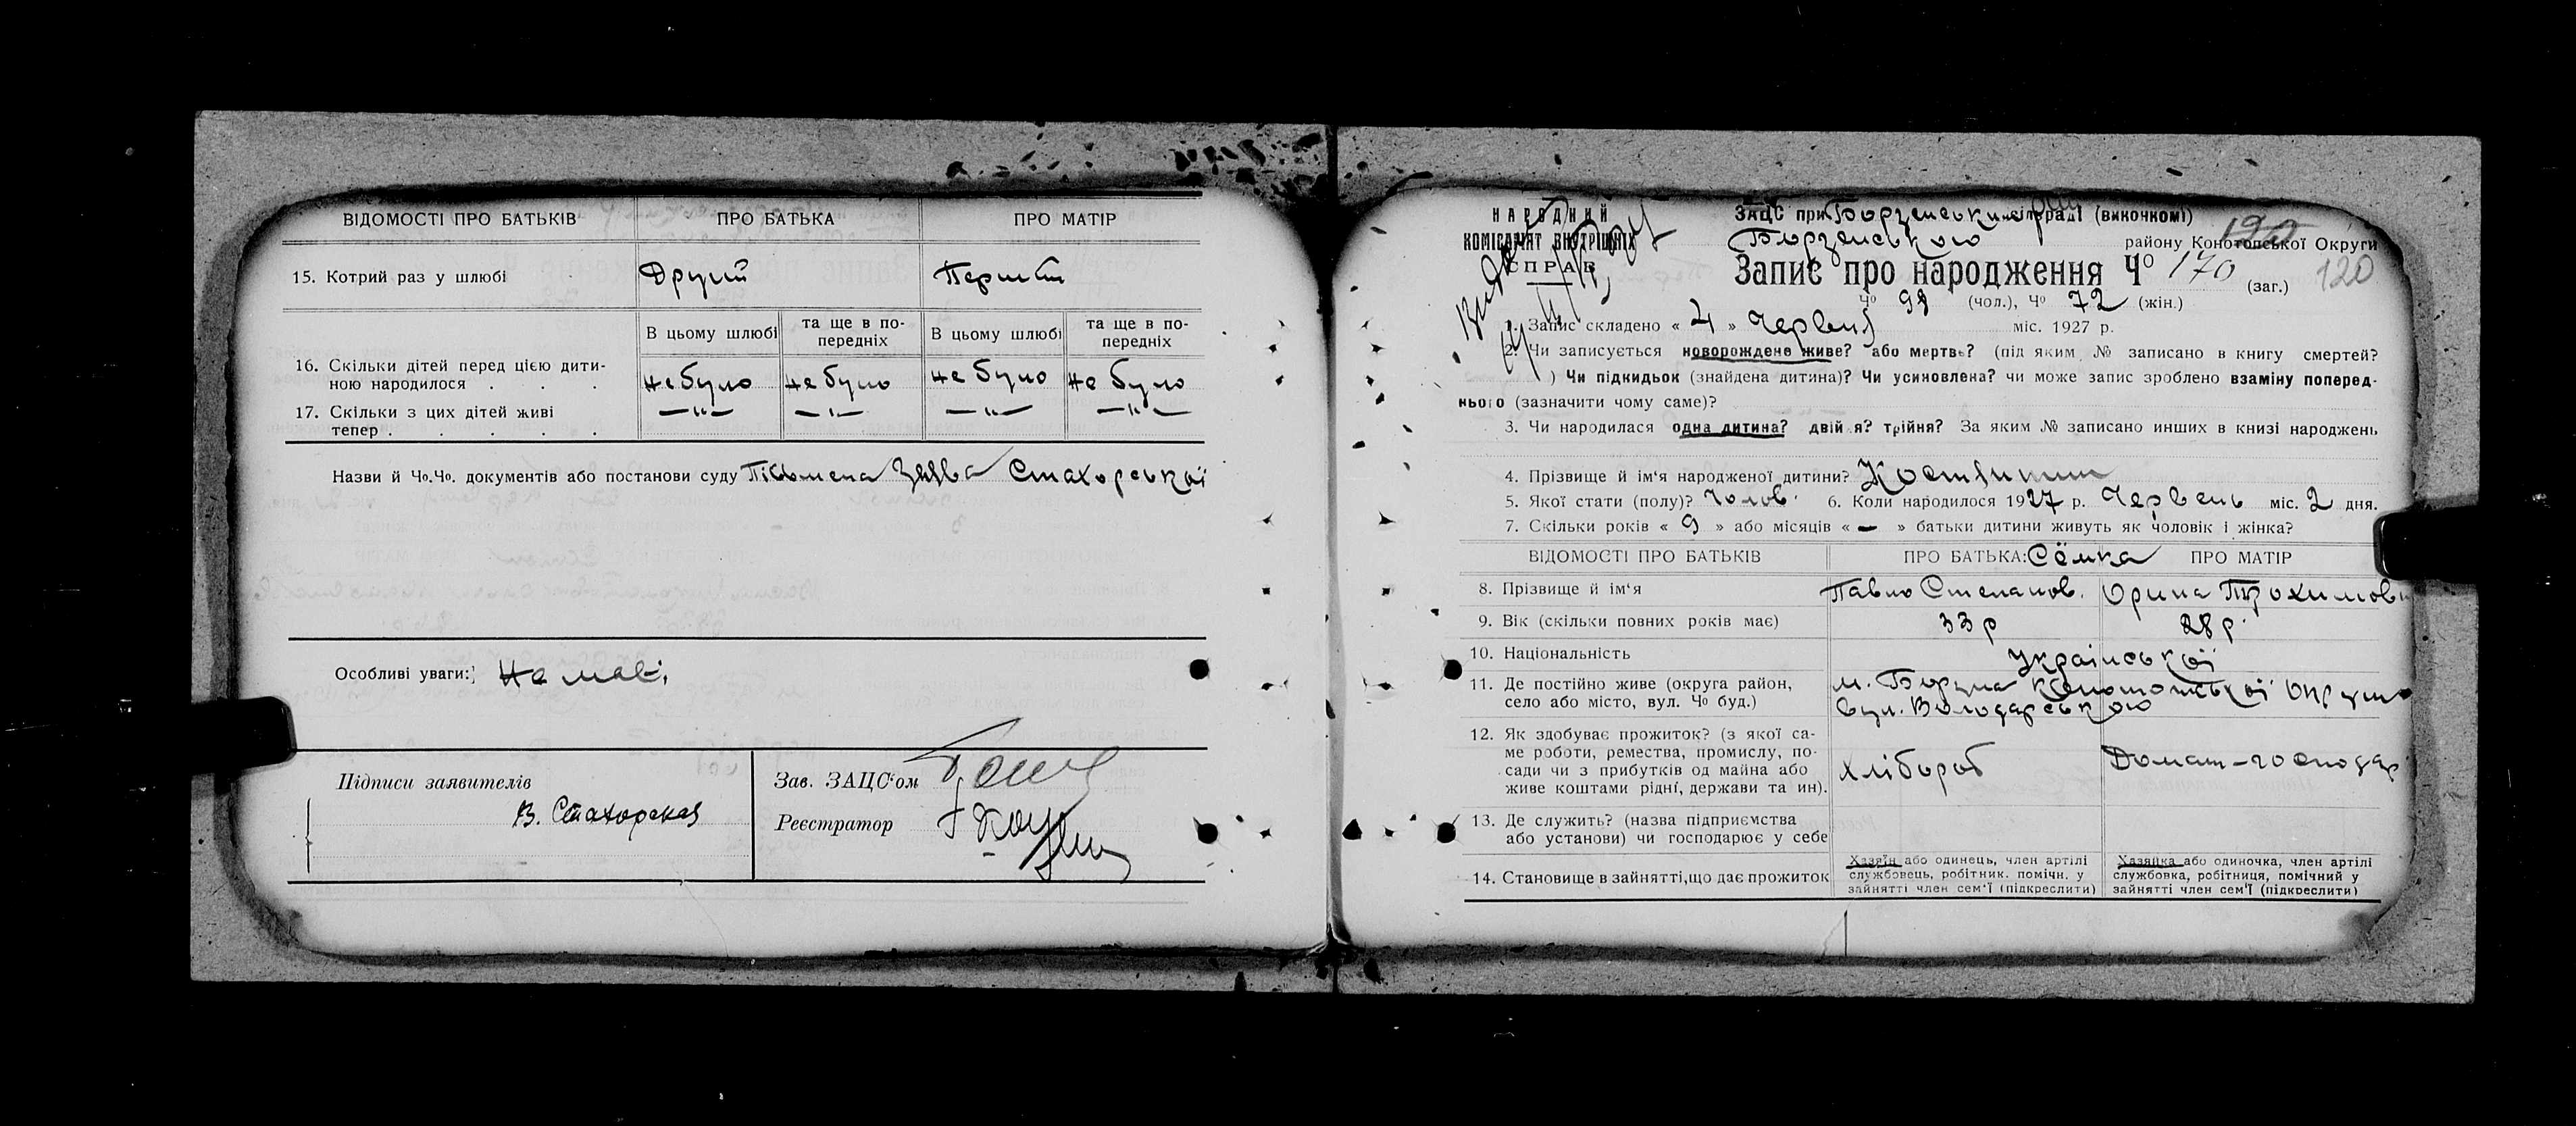 ВІДОМОСТІ ПРО БАТЬКІВ ПРО БАТЬКА ПРО МАТІР
15. Котрий раз у шлюбі Другий Перший
В цьому шлюбі та ще в по- В цьому шлюбі та ще в по-
передніх передніх
16. Скільки дітей перед цією дити-
ною народилося . . . не було не було не було не було
17. Скільки з цих дітей живі —"— —"— —"— —"—
тепер . . . . .
Назви й Чо.Чо. документів або постанови суду Письмена Заява Стахорської
Особливі уваги: Немає
Підписи заявителів Зав. ЗАЦС'ом
В. Стахорская
Реєстратор
НАРОДНИЙ
КОМІСАРІЯТ ВНУТРІШНІХ
СПРАВ
ЗАЦС при Борзенськи міськраді (викочкомі) 190
Борзенського району Конотопської Округи
Запис про народження Чо 170 (заг.) 120
Чо 98 (чол.), Чо 72 (жін.)
1. Запис складено « 4 » Червня міс. 1927 р.
2. Чи записується новорождене живе? або мертве? (під яким № записано в книгу смертей?
) Чи підкидьок (знайдена дитина)? Чи усиновлена? чи може запис зроблено взаміну поперед-
нього (зазначити чому саме)?
3. Чи народилася одна дитина? двійня? трійня? За яким № записано инших в книзі народжень
4. Прізвище й ім'я народженої дитини? Костянтин
5. Якої стати (полу)? Чолов. 6. Коли народилося 1927 р. Червень міс. 2 дня.
7. Скільки років « 9 » або місяців « — » батьки дитини живуть як чоловік і жінка?
ВІДОМОСТІ ПРО БАТЬКІВ ПРО БАТЬКА: Сёмка ПРО МАТІР
8. Прізвище й ім'я Павло Степанов. Орина Трохимовн
9. Вік (скільки повних років має) 33 р 28 р.
10. Національність Української
11. Де постійно живе (округа район, м. Борзна Конотопської Округи
село або місто, вул. Чо буд.) вул. Володарського
12. Як здобуває прожиток? (з якої са-
ме роботи, ремества, промислу, по-
сади чи з прибутків од майна або Хлібороб Домаш-господар
живе коштами рідні, держави та ин).
13. Де служить? (назва підприємства
або установи) чи господарює у себе
14. Становище в зайнятті, що дає прожиток
Хазяїн або одинець, член артілі
службовець, робітник. помічн. у
зайнятті член сем'ї (підкреслити)
Хазяйка або одиночка, член артілі
службовка, робітниця, помічний у
зайнятті член сем'ї (підкреслити)